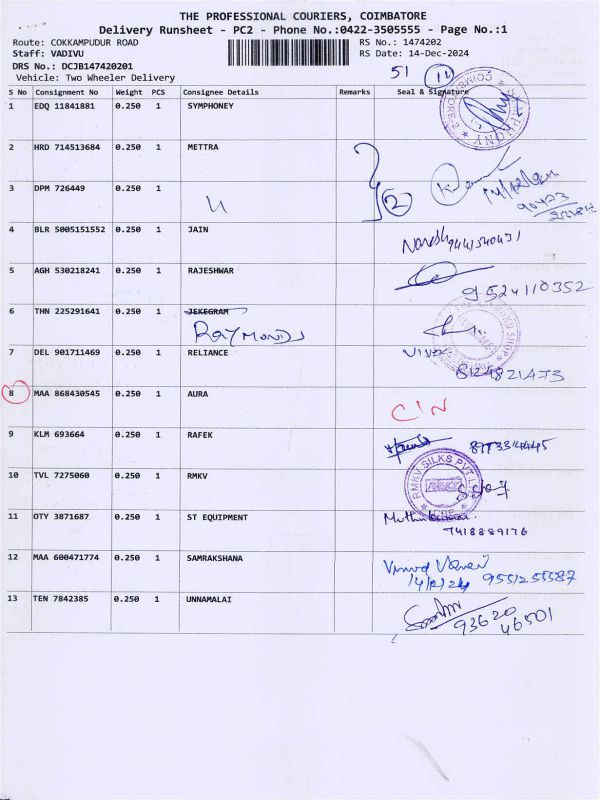 THE PROFESSIONAL COURIERS, COIMBATORE
Delivery Runsheet - PC2 - Phone No.:0422-3505555 - Page No.:1
Route: COKKAMPUDUR ROAD RS No.: 1474202
Staff: VADIVU RS Date: 14-Dec-2024
DRS No.: DCJB147420201
Vehicle: Two Wheeler Delivery
51 12
S No Consignment No Weight PCS Consignee Details Remarks Seal & Signature
1 EDQ 11841881 0.250 1 SYMPHONEY
2 HRD 714513684 0.250 1 METTRA
3 DPM 726449 0.250 1 2
4 BLR 5005151552 0.250 1 JAIN Naresh
5 AGH 530218241 0.250 1 RAJESHWAR 9524110352
6 THN 225291641 0.250 1 JEKEGRAM
RAYMONDS
7 DEL 901711469 0.250 1 RELIANCE
8124821473
8 MAA 868430545 0.250 1 AURA
C/N
9 KLM 693664 0.250 1 RAFEK
10 TVL 7275060 0.250 1 RMKV RMKV SILKS PVT L
RMKV
11 OTY 3871687 0.250 1 ST EQUIPMENT Muthukumar
7418889176
12 MAA 600471774 0.250 1 SAMRAKSHANA
14/12/24 9551255587
13 TEN 7842385 0.250 1 UNNAMALAI
93620
46501